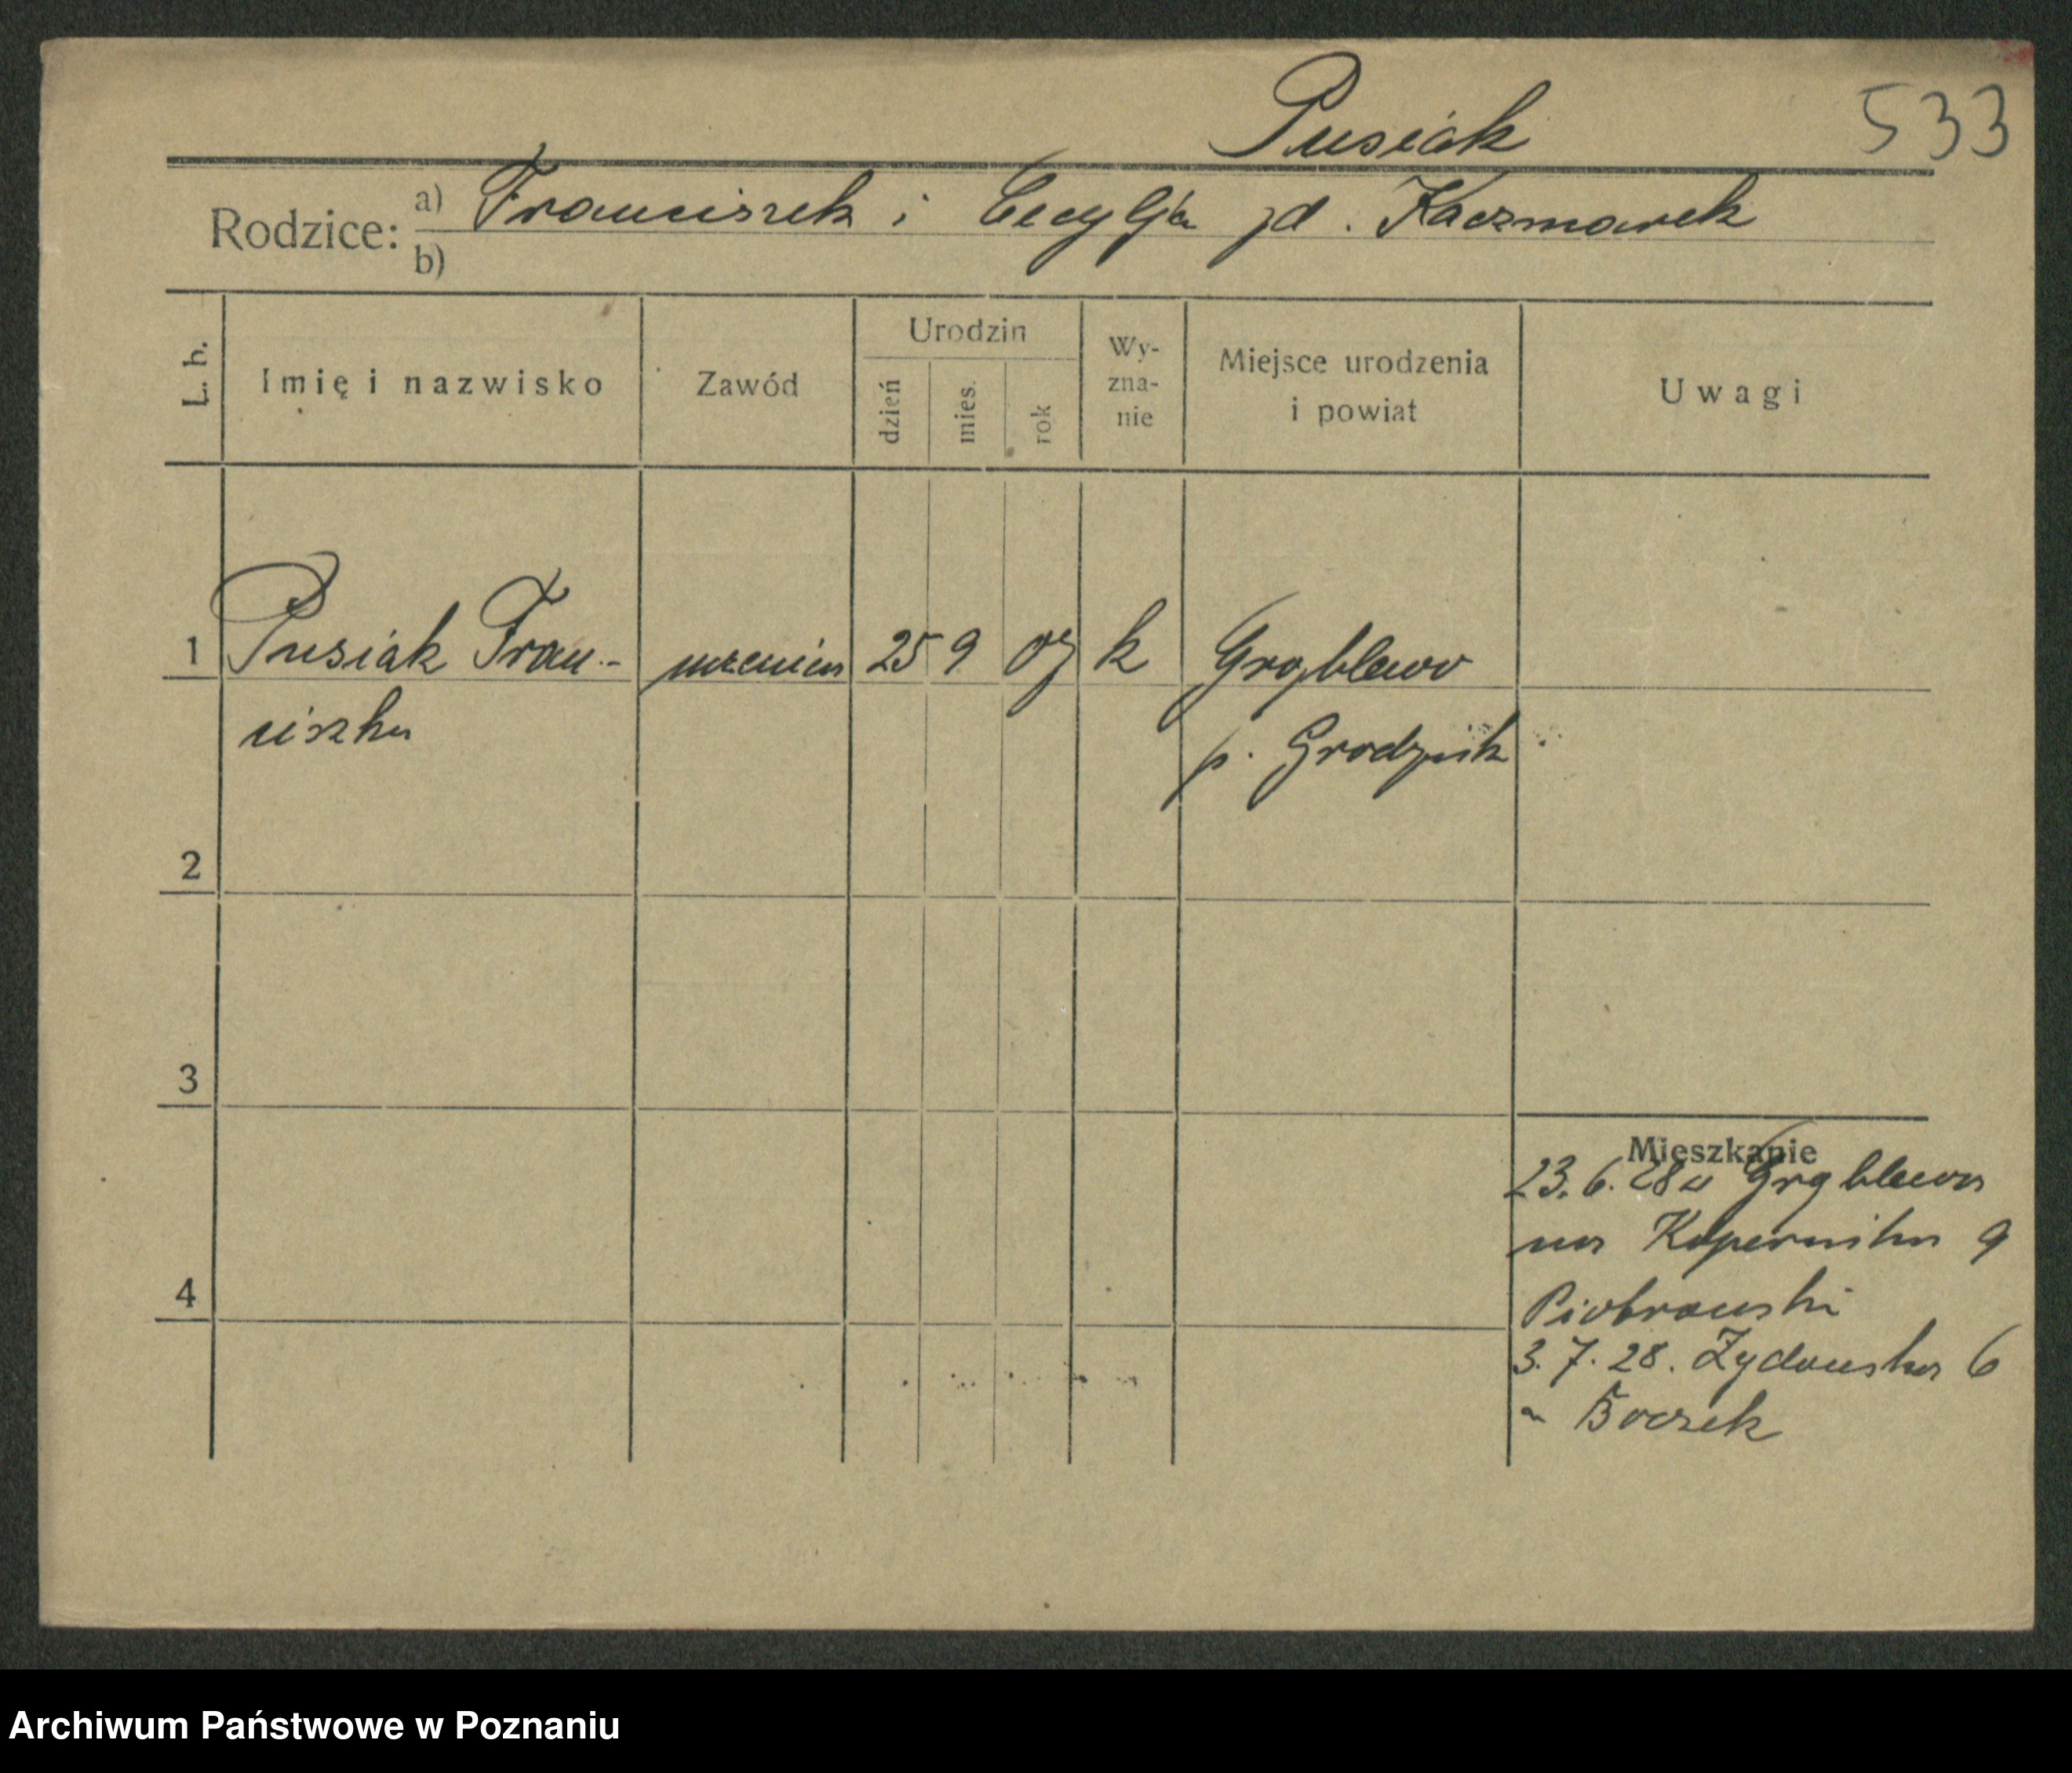 Pusiak 533
Rodzice: a) Franciszek i Cecylja zd. Kaczmarek
b)
L. b. Imię i nazwisko Zawód Urodzin dzień mies. rok Wy-zna-nie Miejsce urodzenia i powiat Uwagi
1 Pusiak Fran- 25 9 09 k Grąblewo
ciszka p. Grodzisk
2
3
Mieszkanie
23.6.28 Grąblewa
na Kopernika 9
4 Piotrowski
3.7.28. Żydowska 6
Boczek
Archiwum Państwowe w Poznaniu